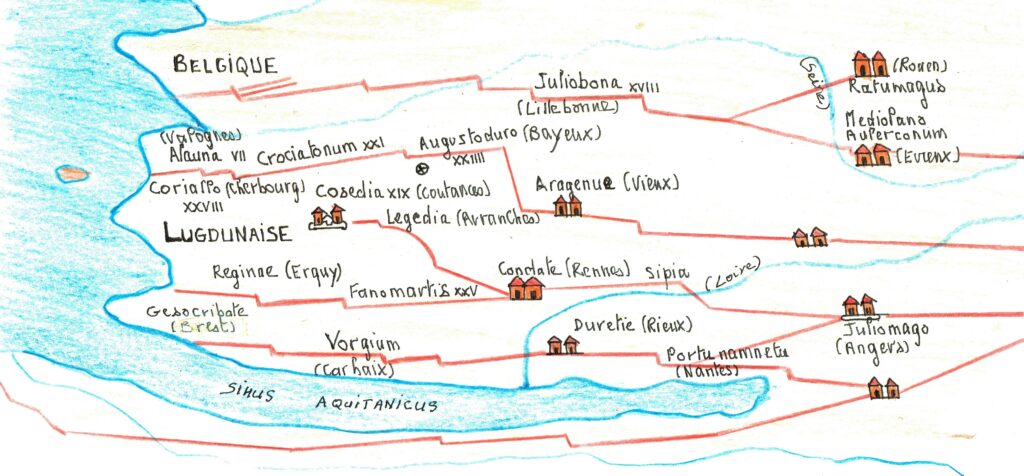 BELGIQUE
Juliobona XVIII
(Lillebonne)
(Seine)
(Rouen)
Ratumagus
Mediolano
Aulerconum
(Evreux)
(Valognes)
Alauna VII Crociatonum XXI
Augustoduro (Bayeux)
XXIIII
Coriallo (Cherbourg)
XXVIII
Cosedia XIX (Coutances)
Legedia (Avranches)
Aragenue (Vieux)
LUGDUNAISE
Reginae (Erquy)
Fanomartis XXV
Condate (Rennes) Sipia
(Loire)
Gesocribate
(Brest)
Vorgium
(Carhaix)
Duretie (Rieux)
Portunamnetu
(Nantes)
Juliomago
(Angers)
SINUS
AQUITANICUS